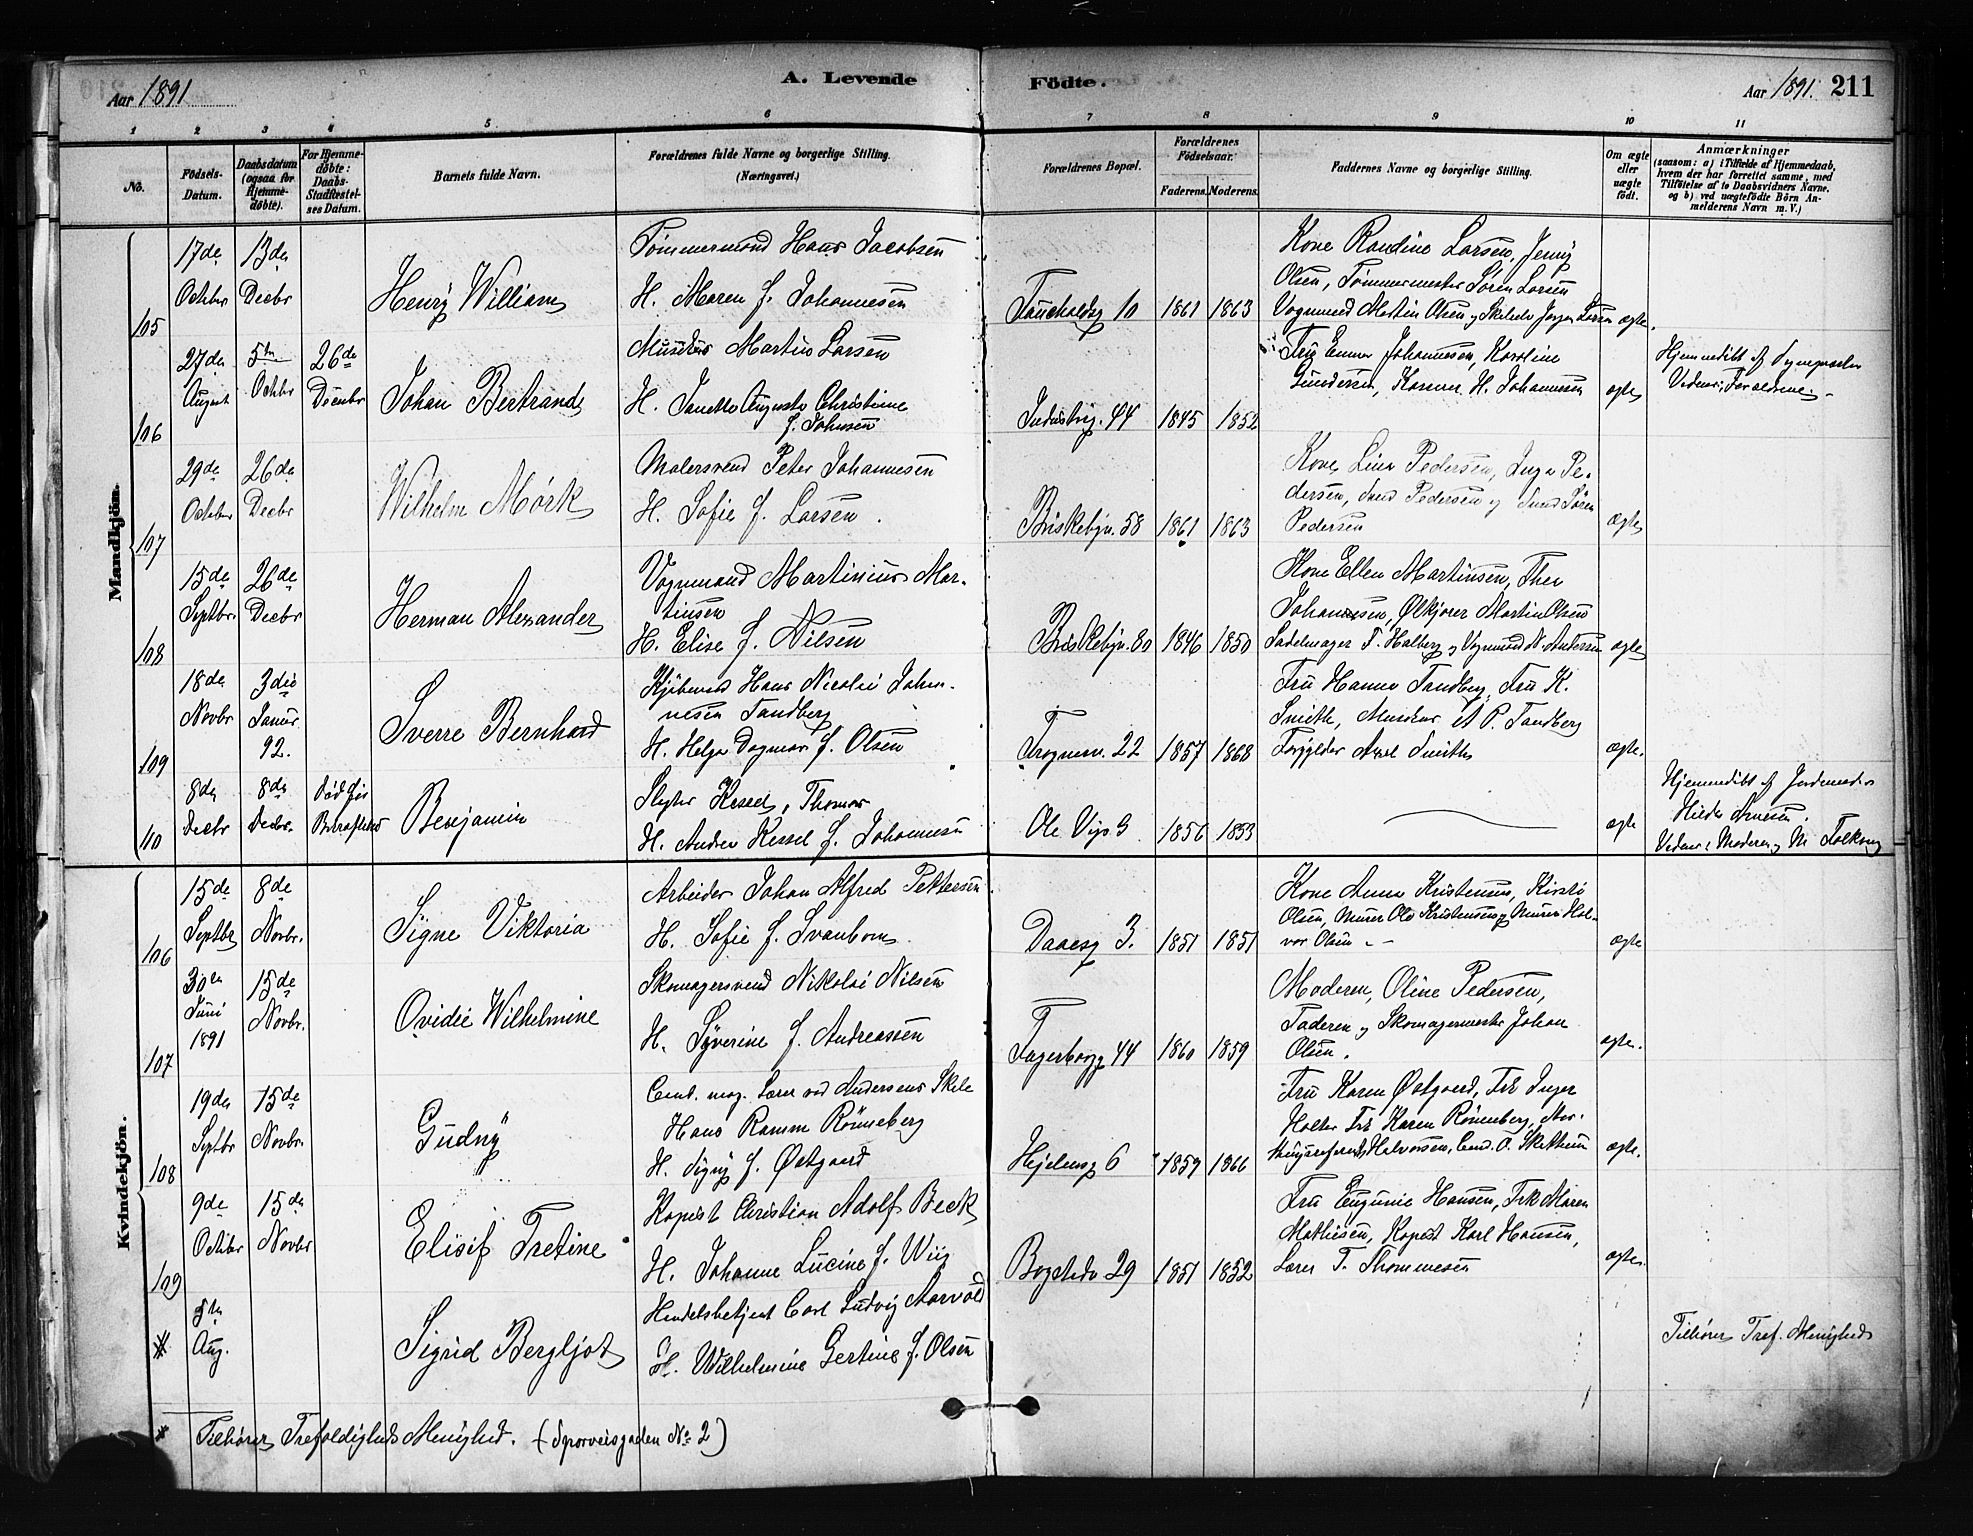 Aar 1891
A. Levende
Födte.
Aar 1891. 211
1 2 3 4 5 6 7 8 9 10 11
No.
Födsels-Datum.
Daabsdatum (ogsaa for Hjemme-døbte).
For Hjemme-døbte: Daabs-Stadfæstel-ses Datum.
Barnets fulde Navn.
Forældrenes fulde Navne og borgerlige Stilling.
(Næringsvei.)
Forældrenes Bopæl.
Forældrenes Födselsaar.
Faderens. Moderens.
Faddernes Navne og borgerlige Stilling.
Om ægte eller uægte födt.
Anmærkninger
(saasom: a) i Tilfælde af Hjemmedaab,
hvem der har forrettet samme, med
Tilföielse af to Daabsvidners Navne.
og b) ved uægtefödte Börn An-
melderens Navn m. V.)
Mandkjön.
105
17de Octbr
13de Decbr
Henry William
Tømmermand Hans Jacobsen
H. Maren f. Johannesen
10 1861 1863
Kone Randine Larsen, Jenny
Olsen, Tømmermester Søren Larsen
Vognmand Martin Olsen og Jørgen Larsen
ægte.
106
27de August
5te Octbr
26de Decbr
Johan Bertrand
Musikus Martin Larsen
H. Janette Augusta Christine
f. Johnsen
Industrig. 44 1845 1852
Fru Emma Johannesen, Karoline
Gundersen, H. Johannesen
ægte
Hjemmedøbt af
Vidner: Forældrene
107
29de Octbr
26de Decbr
Wilhelm Mørk
Malersvend Peter Johannesen
H. Sofie f. Larsen.
Briskebyv. 58 1861 1863
Kone Lina Pedersen, Inga Pe-
dersen, Pedersen og Søren
Pedersen
ægte
108
15de Septbr.
26de Decbr
Herman Alexander
Vognmand Martinius Mar-
tinsen
H. Elise f. Nilsen
Briskebyv. 80 1846 1850
Kone Ellen Martinsen, Thea
Johannesen, Ølkjører Martin Olsen
Sadelmager T. Halberg og Vognmand N. Andersen
ægte
109
18de Novbr
3die Januar 92.
Sverre Bernhard
Kjøbmand Hans Nicolai Johan-
nesen Tandberg
H. Helga Dagmar f. Olsen
Frognerv. 22 1857 1868
Fru Hanna Tandberg, Fru K.
Smith, Musikus A P. Tandberg
Forgylder Axel Smith
ægte.
110
8de Decbr
8de Decbr.
Død før Bekræftelse
Benjamin
Slagter Kessel, Thomas
H. Andrea Kessel f. Johannesen
Ole Vigs G 1856 1853
ægte
Hjemmedøbt af Jordemoder
Hilda Arnesen.
Vidner: Moderen og M Falkong
Kvindekjön.
106
15de Septbr
8de Novbr.
Signe Viktoria
Arbeider Johan Alfred Pettersen
H. Sofie f. Svanbom
Daaesg 3. 1851 1851
Kone Anna Kristensen, Kirsti
Olsen, Murer Ole Kristensen og Murer Hal-
vor Olsen
ægte
107
30te Juni 1891
15de Novbr.
Ovidie Wilhelmine
Skomagersvend Nikolai Nilsen
H. Syverine f. Andreassen
Fagerborgg 44 1860 1859
Moderen, Oline Pedersen,
Faderen og Skomagermester Johan
Olsen.
ægte.
108
19de Septbr
15de Novbr.
Gudny
Cand. mag. Lærer ved Andersens Skole
Hans Ramm Rönneberg
H. Signy f. Østgaard
Hejdensg 6 1859 1866
Fru Karen Østgaard, Frk Inger
Holter Frk Karen Rønneberg,
Halvorsen, Cand. O. Skattum
ægte.
109
9de Octbr
15de Novbr
Elisif Tretine
Kopist Christian Adolf Beck
H. Johanne Lucine f. Wiig
Bogstadv 29 1851 1852
Fru Eugenie Hansen, Frk Maren
Mathiesen, Kopist Karl Hansen,
Lærer T. Thommesen
ægte.
*
5te Aug.
Sigrid Bergljot
Handelsbetjent Carl Ludvig Aarvold
H. Wilhelmine Gertine f. Olsen
Tilhører Tref. Menighed
* Tilhører Trefoldigheds Menighed. (Sporveisgaden No 2)